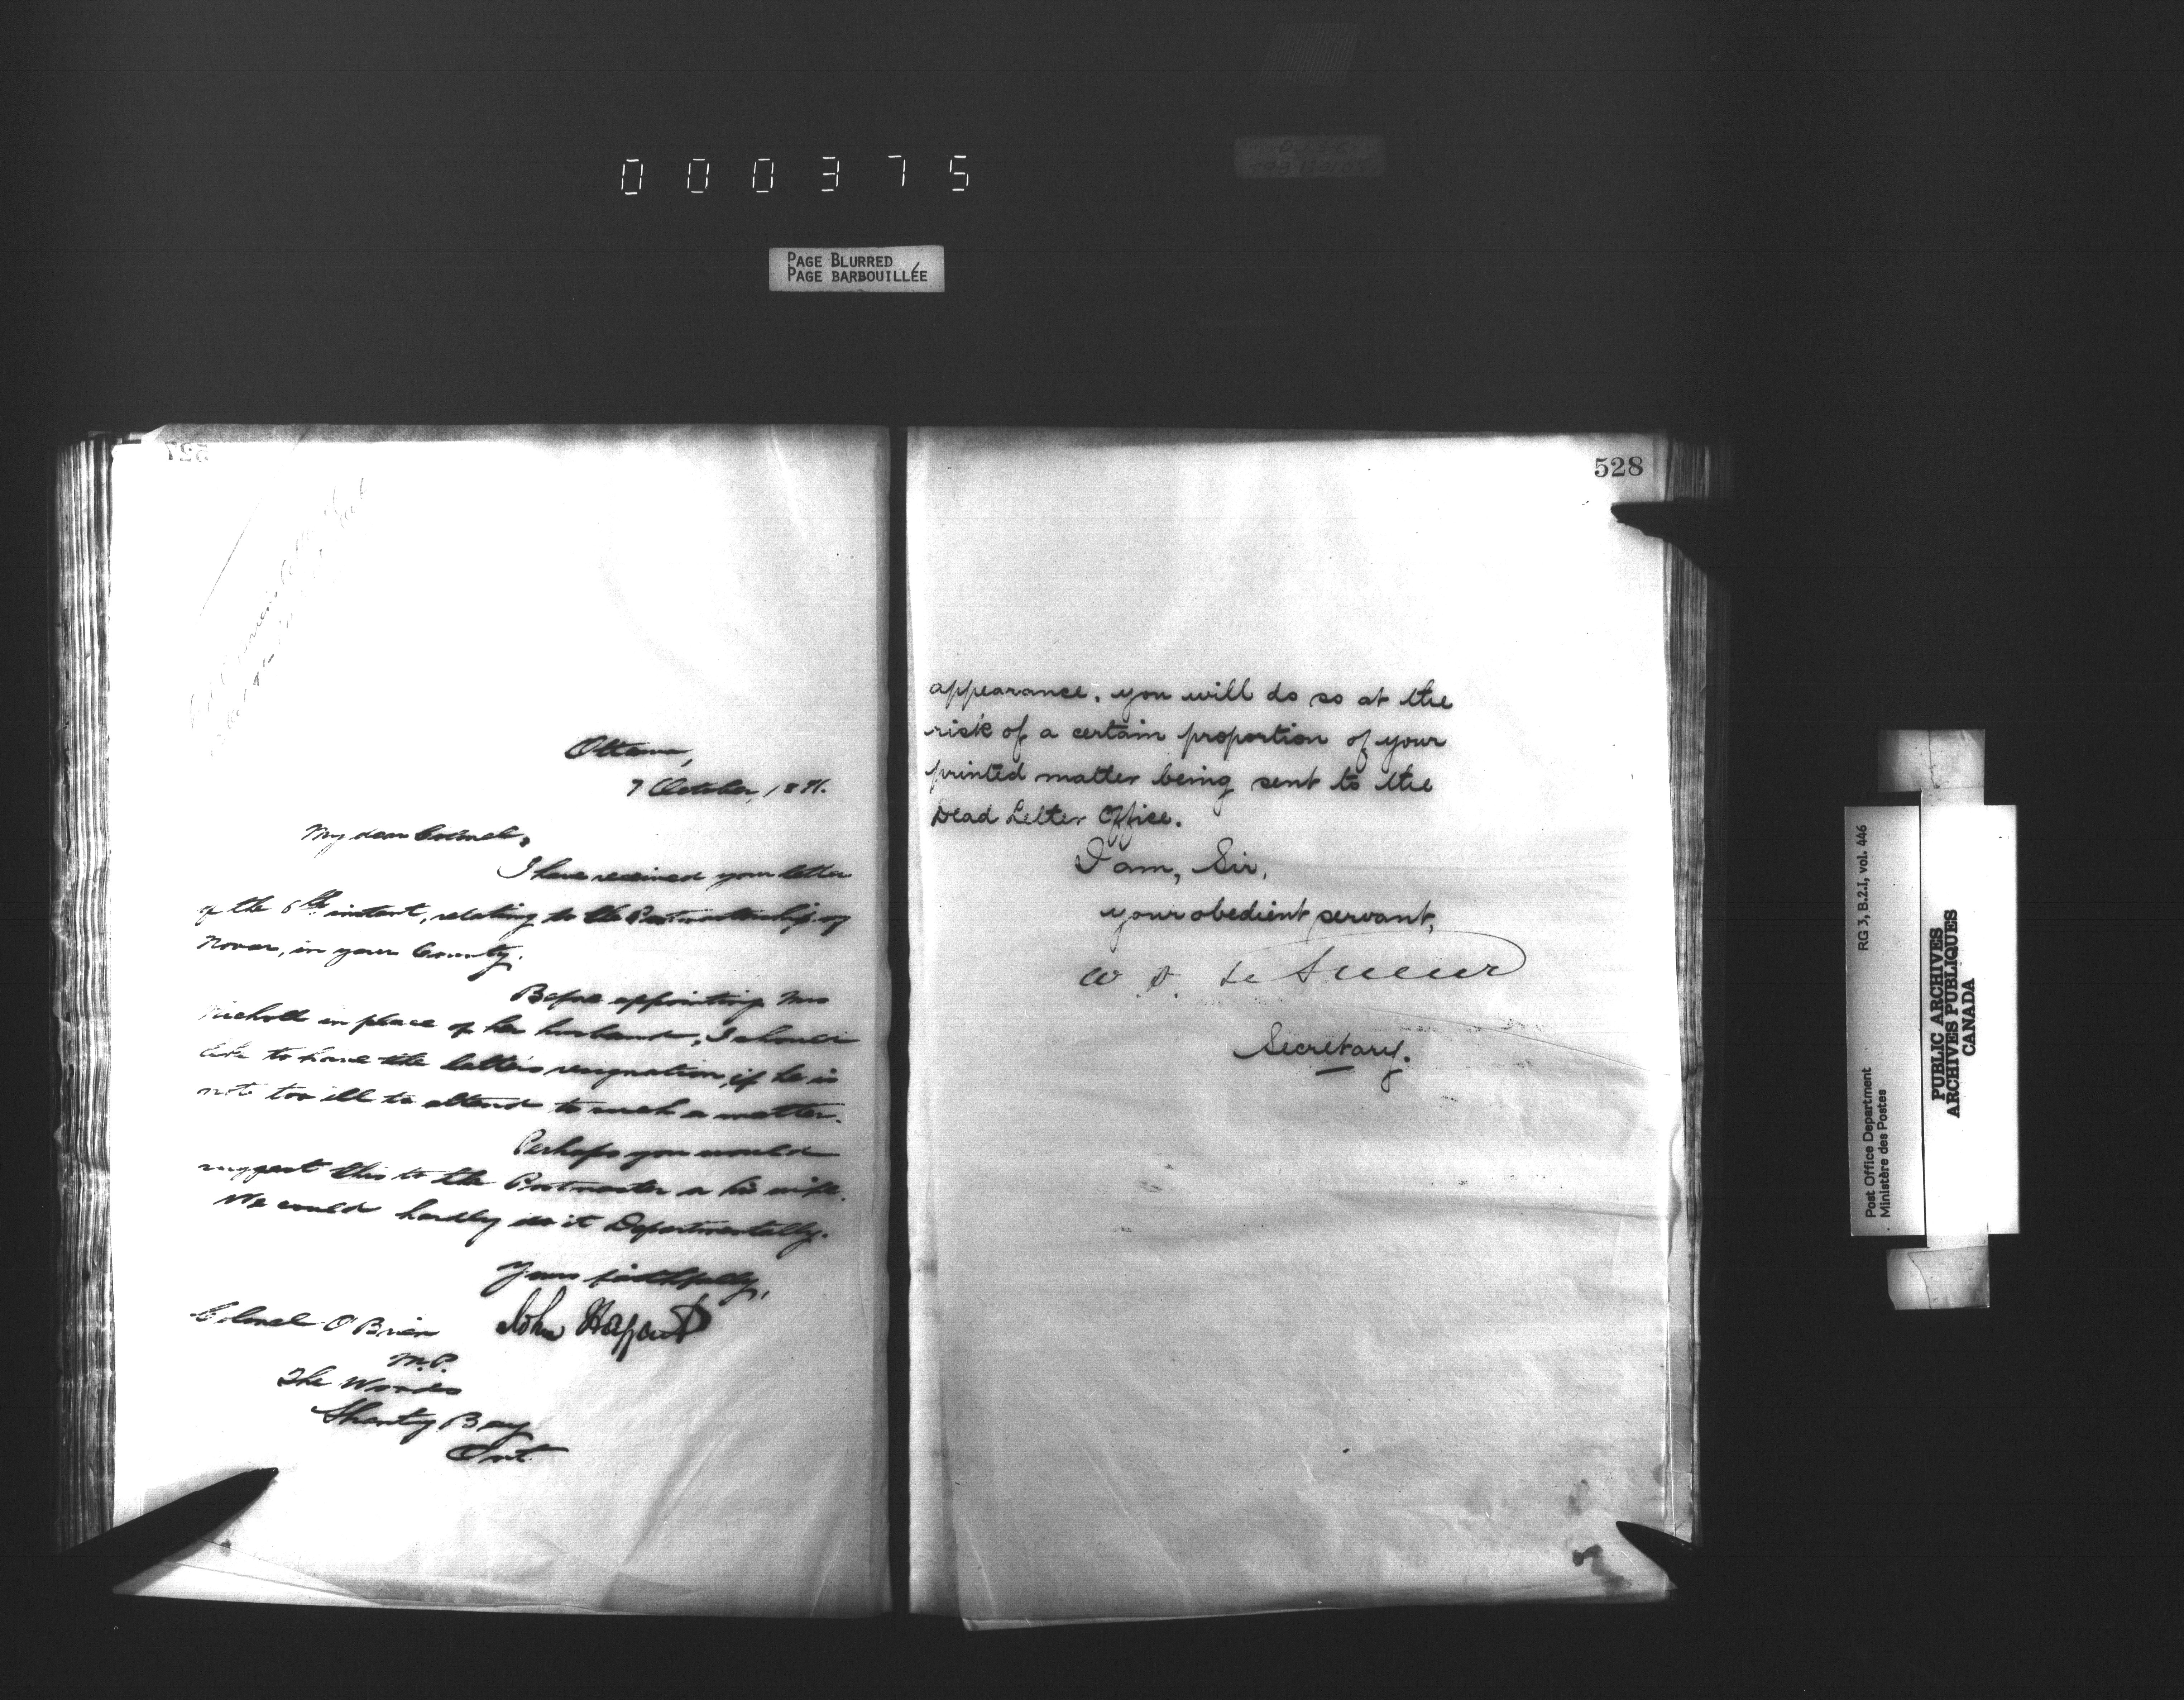 000375
PAGE BLURRED
PAGE BARBOUILLÉE
527
Ottawa,
7 October, 1891.
My dear Colonel,
I have received your letter
of the 6th instant, relating to the Postmastership of
in your County.
Before appointing Mrs
Nicholl in place of her husband, I should
like to have the latter's resignation, if he is
not too ill to attend to such a matter.
Perhaps you would
suggest this to the Postmaster or his wife.
We could hardly do it Departmentally.
Yours faithfully,
John Haggart
Colonel O'Brien
M.P.
The Woods
Shanty Bay
Ont.
528
appearance, you will do so at the
risk of a certain proportion of your
printed matter being sent to the
Dead Letter Office.
I am, Sir,
your obedient servant,
W. D. LeSueur
Secretary.
RG 3, B.2.I, vol. 446
Post Office Department
Ministère des Postes
PUBLIC ARCHIVES
ARCHIVES PUBLIQUES
CANADA